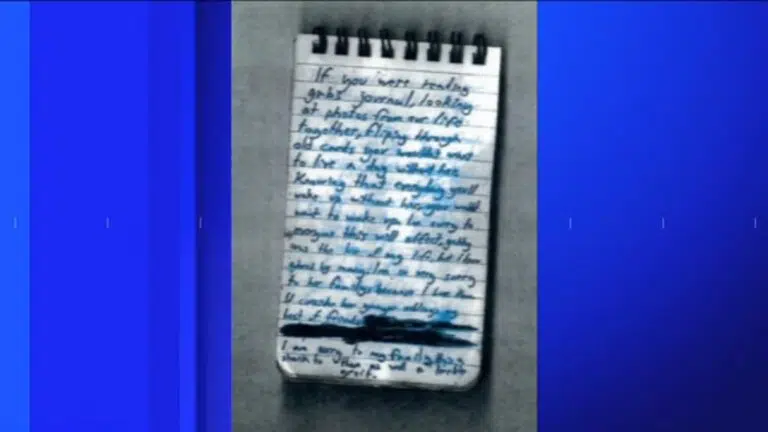 If you were reading
gabs journal, looking
at photos from our life
together, fliping through
old cards you wouldn't want
to live a day without her.
Knowing that everyday you'll
wake up without her, you wouldn't
want to wake up. I'm sorry to
everyone this will affect, gabby
was the love of my life, but I
by many. I'm so very sorry
to her family because I love them
I consider her younger siblings my
best of friends
I am sorry to my family, this is
shock to them as well a
grief.